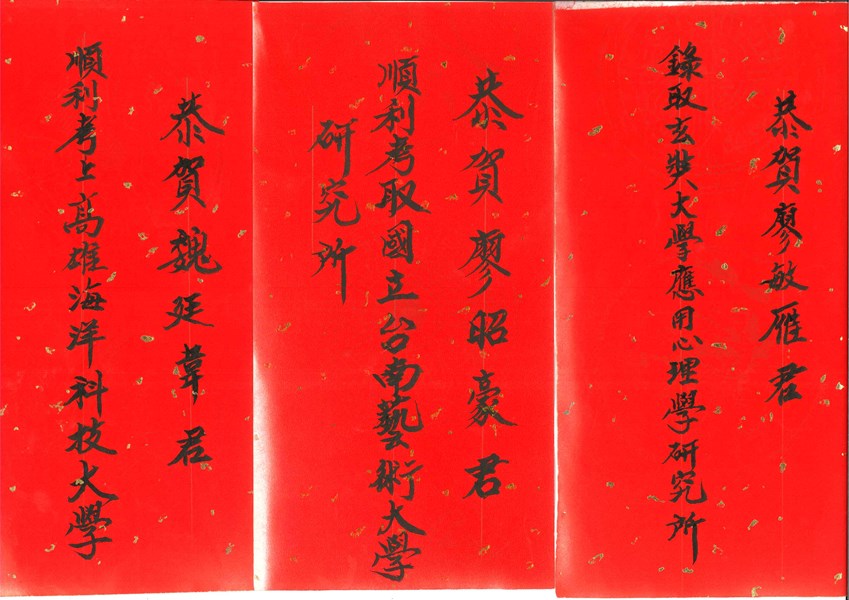 恭賀廖敏雁君
錄取玄奘大學應用心理學研究所
恭賀廖昭豪君
順利考取國立台南藝術大學
研究所
恭賀魏廷韋君
順利考上高雄海洋科技大學